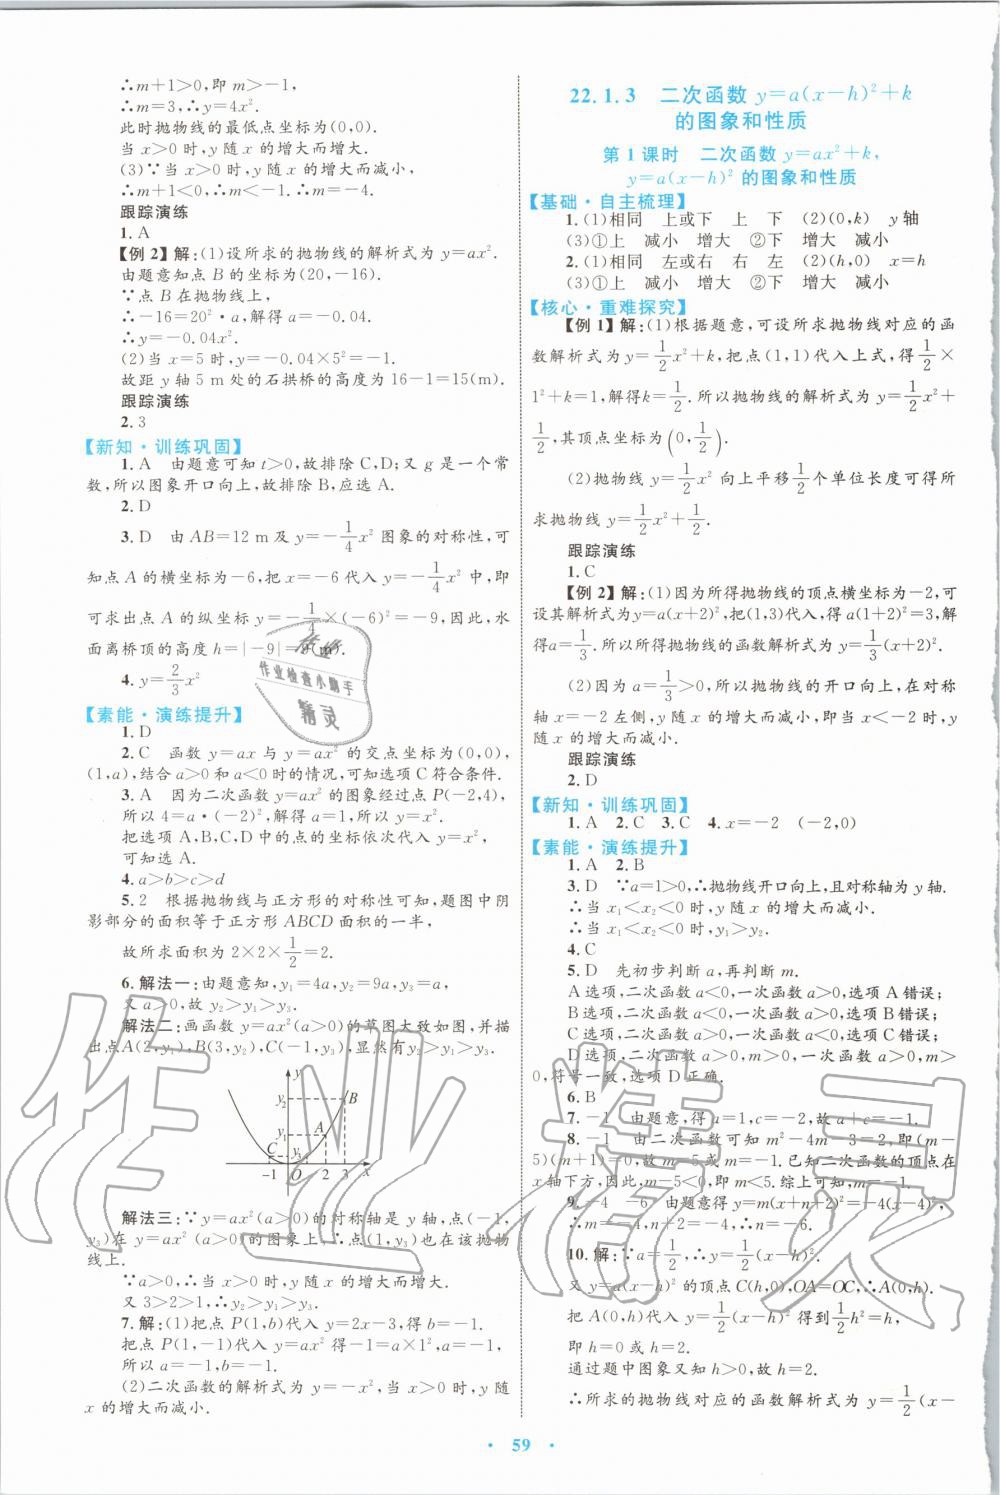 ∴m+1>0,即 m>-1,
∴m=3,∴y=4x².
此时抛物线的最低点坐标为(0,0).
当 x>0 时,y 随 x 的增大而增大.
(3)∵当 x>0 时,y 随 x 的增大而减小,
∴m+1<0,∴m<-1.∴m=-4.
跟踪演练
1.A
【例 2】解:(1)设所求的抛物线的解析式为 y=ax².
由题意知点 B 的坐标为(20,-16).
∵点 B 在抛物线上,
∴-16=20²·a,解得 a=-0.04.
∴y=-0.04x².
(2)当 x=5 时,y=-0.04×5²=-1.
故距 y 轴 5 m 处的石拱桥的高度为 16-1=15(m).
跟踪演练
2.3
【新知·训练巩固】
1.A 由题意可知 t>0,故排除 C,D;又 g 是一个常
数,所以图象开口向上,故排除 B,应选 A.
2.D
3.D 由 AB=12 m及 y=-1/4x² 图象的对称性,可
知点 A 的横坐标为-6,把 x=-6 代入 y=-1/4x² 中,即
可求出点 A 的纵坐标 y=-1/4×(-6)²=-9,因此,水
面离桥顶的高度 h=|-9|=9(m).
4.y=2/3x²
【素能·演练提升】
1.D
2.C 函数 y=ax 与 y=ax² 的交点坐标为(0,0),
(1,a),结合 a>0 和 a<0 时的情况,可知选项 C 符合条件.
3.A 因为二次函数 y=ax² 的图象经过点 P(-2,4),
所以 4=a·(-2)²,解得 a=1,所以 y=x².
把选项 A,B,C,D 中的点的坐标依次代入 y=x²,
可知选 A.
4.a>b>c>d
5.2 根据抛物线与正方形的对称性可知,题图中阴
影部分的面积等于正方形 ABCD 面积的一半,
故所求面积为 2×2×1/2=2.
6.解法一:由题意知,y₁=4a,y₂=9a,y₃=a,
又 a>0,故 y₂>y₁>y₃.
解法二:画函数 y=ax²(a>0)的草图大致如图,并描
出点A(2,y₁),B(3,y₂),C(-1,y₃),显然有 y₂>y₁>y₃.
y
y₂ B
y₁ A
C y₃
-1 O 2 3 x
解法三:∵y=ax²(a>0)的对称轴是 y 轴,点(-1,
y₃)在 y=ax²(a>0)的图象上,∴点(1,y₃)也在该抛物
线上.
∵a>0,∴当 x>0 时,y 随 x 的增大而增大.
又 3>2>1,∴y₂>y₁>y₃.
7.解:(1)把点 P(1,b)代入 y=2x-3,得 b=-1.
把点 P(1,-1)代入 y=ax² 得-1=a×1²,
所以 a=-1.
(2)二次函数的解析式为 y=-x²,当 x>0 时,y 随
x 的增大而减小.
22.1.3 二次函数 y=a(x-h)²+k
的图象和性质
第 1 课时 二次函数 y=ax²+k,
y=a(x-h)² 的图象和性质
【基础·自主梳理】
1.(1)相同 上或下 上 下 (2)(0,k) y 轴
(3)①上 减小 增大 ②下 增大 减小
2.(1)相同 左或右 右 左 (2)(h,0) x=h
(3)①上 减小 增大 ②下 增大 减小
【核心·重难探究】
【例 1】解:(1)根据题意,可设所求抛物线对应的函
数解析式为 y=1/2x²+k,把点(1,1)代入上式,得1/2×
1²+k=1,解得k=1/2.所以抛物线的解析式为 y=1/2x²+
1/2,其顶点坐标为(0,1/2).
(2)抛物线 y=1/2x² 向上平移1/2个单位长度可得所
求抛物线 y=1/2x²+1/2.
跟踪演练
1.C
【例 2】解:(1)因为所得抛物线的顶点横坐标为-2,可
设其解析式为y=a(x+2)²,把(1,3)代入,得a(1+2)²=3,解
得a=1/3.所以所得抛物线的函数解析式为 y=1/3(x+2)².
(2)因为 a=1/3>0,所以抛物线的开口向上,在对称
轴 x=-2 左侧,y 随 x 的增大而减小,即当 x<-2 时,y
随 x 的增大而减小.
跟踪演练
2.D
【新知·训练巩固】
1.A 2.C 3.C 4.x=-2 (-2,0)
【素能·演练提升】
1.A 2.B
3.D ∵a=1>0,∴抛物线开口向上,且对称轴为 y 轴.
∴当 x₁<x₂<0 时,y 随 x 的增大而减小.
∴当 x₁<x₂<0 时,y₁>y₂.
4.C
5.D 先初步判断 a,再判断 m.
A 选项,二次函数 a<0,一次函数 a>0,选项 A 错误;
B 选项,二次函数 a>0,一次函数 a<0,选项 B 错误;
C 选项,二次函数 a>0,一次函数 a<0,选项 C 错误;
D 选项,二次函数 a>0,m>0,一次函数 a>0,m>
0,符号一致,选项 D 正确.
6.B
7.-1 由题意,得 a=1,c=-2,故 a+c=-1.
8.-1 由二次函数可知 m²-4m-3=2,即(m-
5)(m+1)=0,故 m=5 或 m=-1.已知二次函数的顶点在
x 轴下方,因此,m-5<0,即 m<5.综上可知,m=-1.
9.-4 -6 由题意得 y=m(x+n+2)²=-4(x-4)²,
∴m=-4,n+2=-4,∴n=-6.
10.解:∵a=1/2,∴y=1/2(x-h)².
又 y=a(x-h)² 的顶点 C(h,0),OA=OC,∴A(0,h).
把 A(0,h)代入 y=1/2(x-h)²,得到1/2h²=h,
即 h=0 或 h=2.
通过题中图象又知 h>0,故 h=2.
∴所求的抛物线对应的函数解析式为 y=1/2(x-
· 59 ·
作业
作业检查小助手
精灵
作业精灵